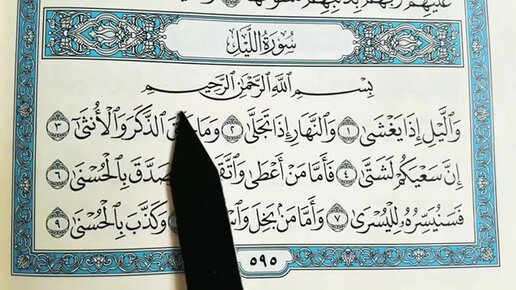 عليهم ربهم بذنبهم فسوىها
سُورَةُ اللَّيْلِ
بِسْمِ اللَّهِ الرَّحْمَٰنِ الرَّحِيمِ
وَاللَّيْلِ إِذَا يَغْشَىٰ ١ وَالنَّهَارِ إِذَا تَجَلَّىٰ ٢ وَمَا الذَّكَرَ وَالْأُنثَىٰ ٣
إِنَّ سَعْيَكُمْ لَشَتَّىٰ ٤ فَأَمَّا مَنْ أَعْطَىٰ بِالْحُسْنَىٰ ٦
فَسَنُيَسِّرُهُ لِلْيُسْرَىٰ ٧ وَأَمَّا مَن بَخِلَ وَكَذَّبَ بِالْحُسْنَىٰ ٩
٥٩٥